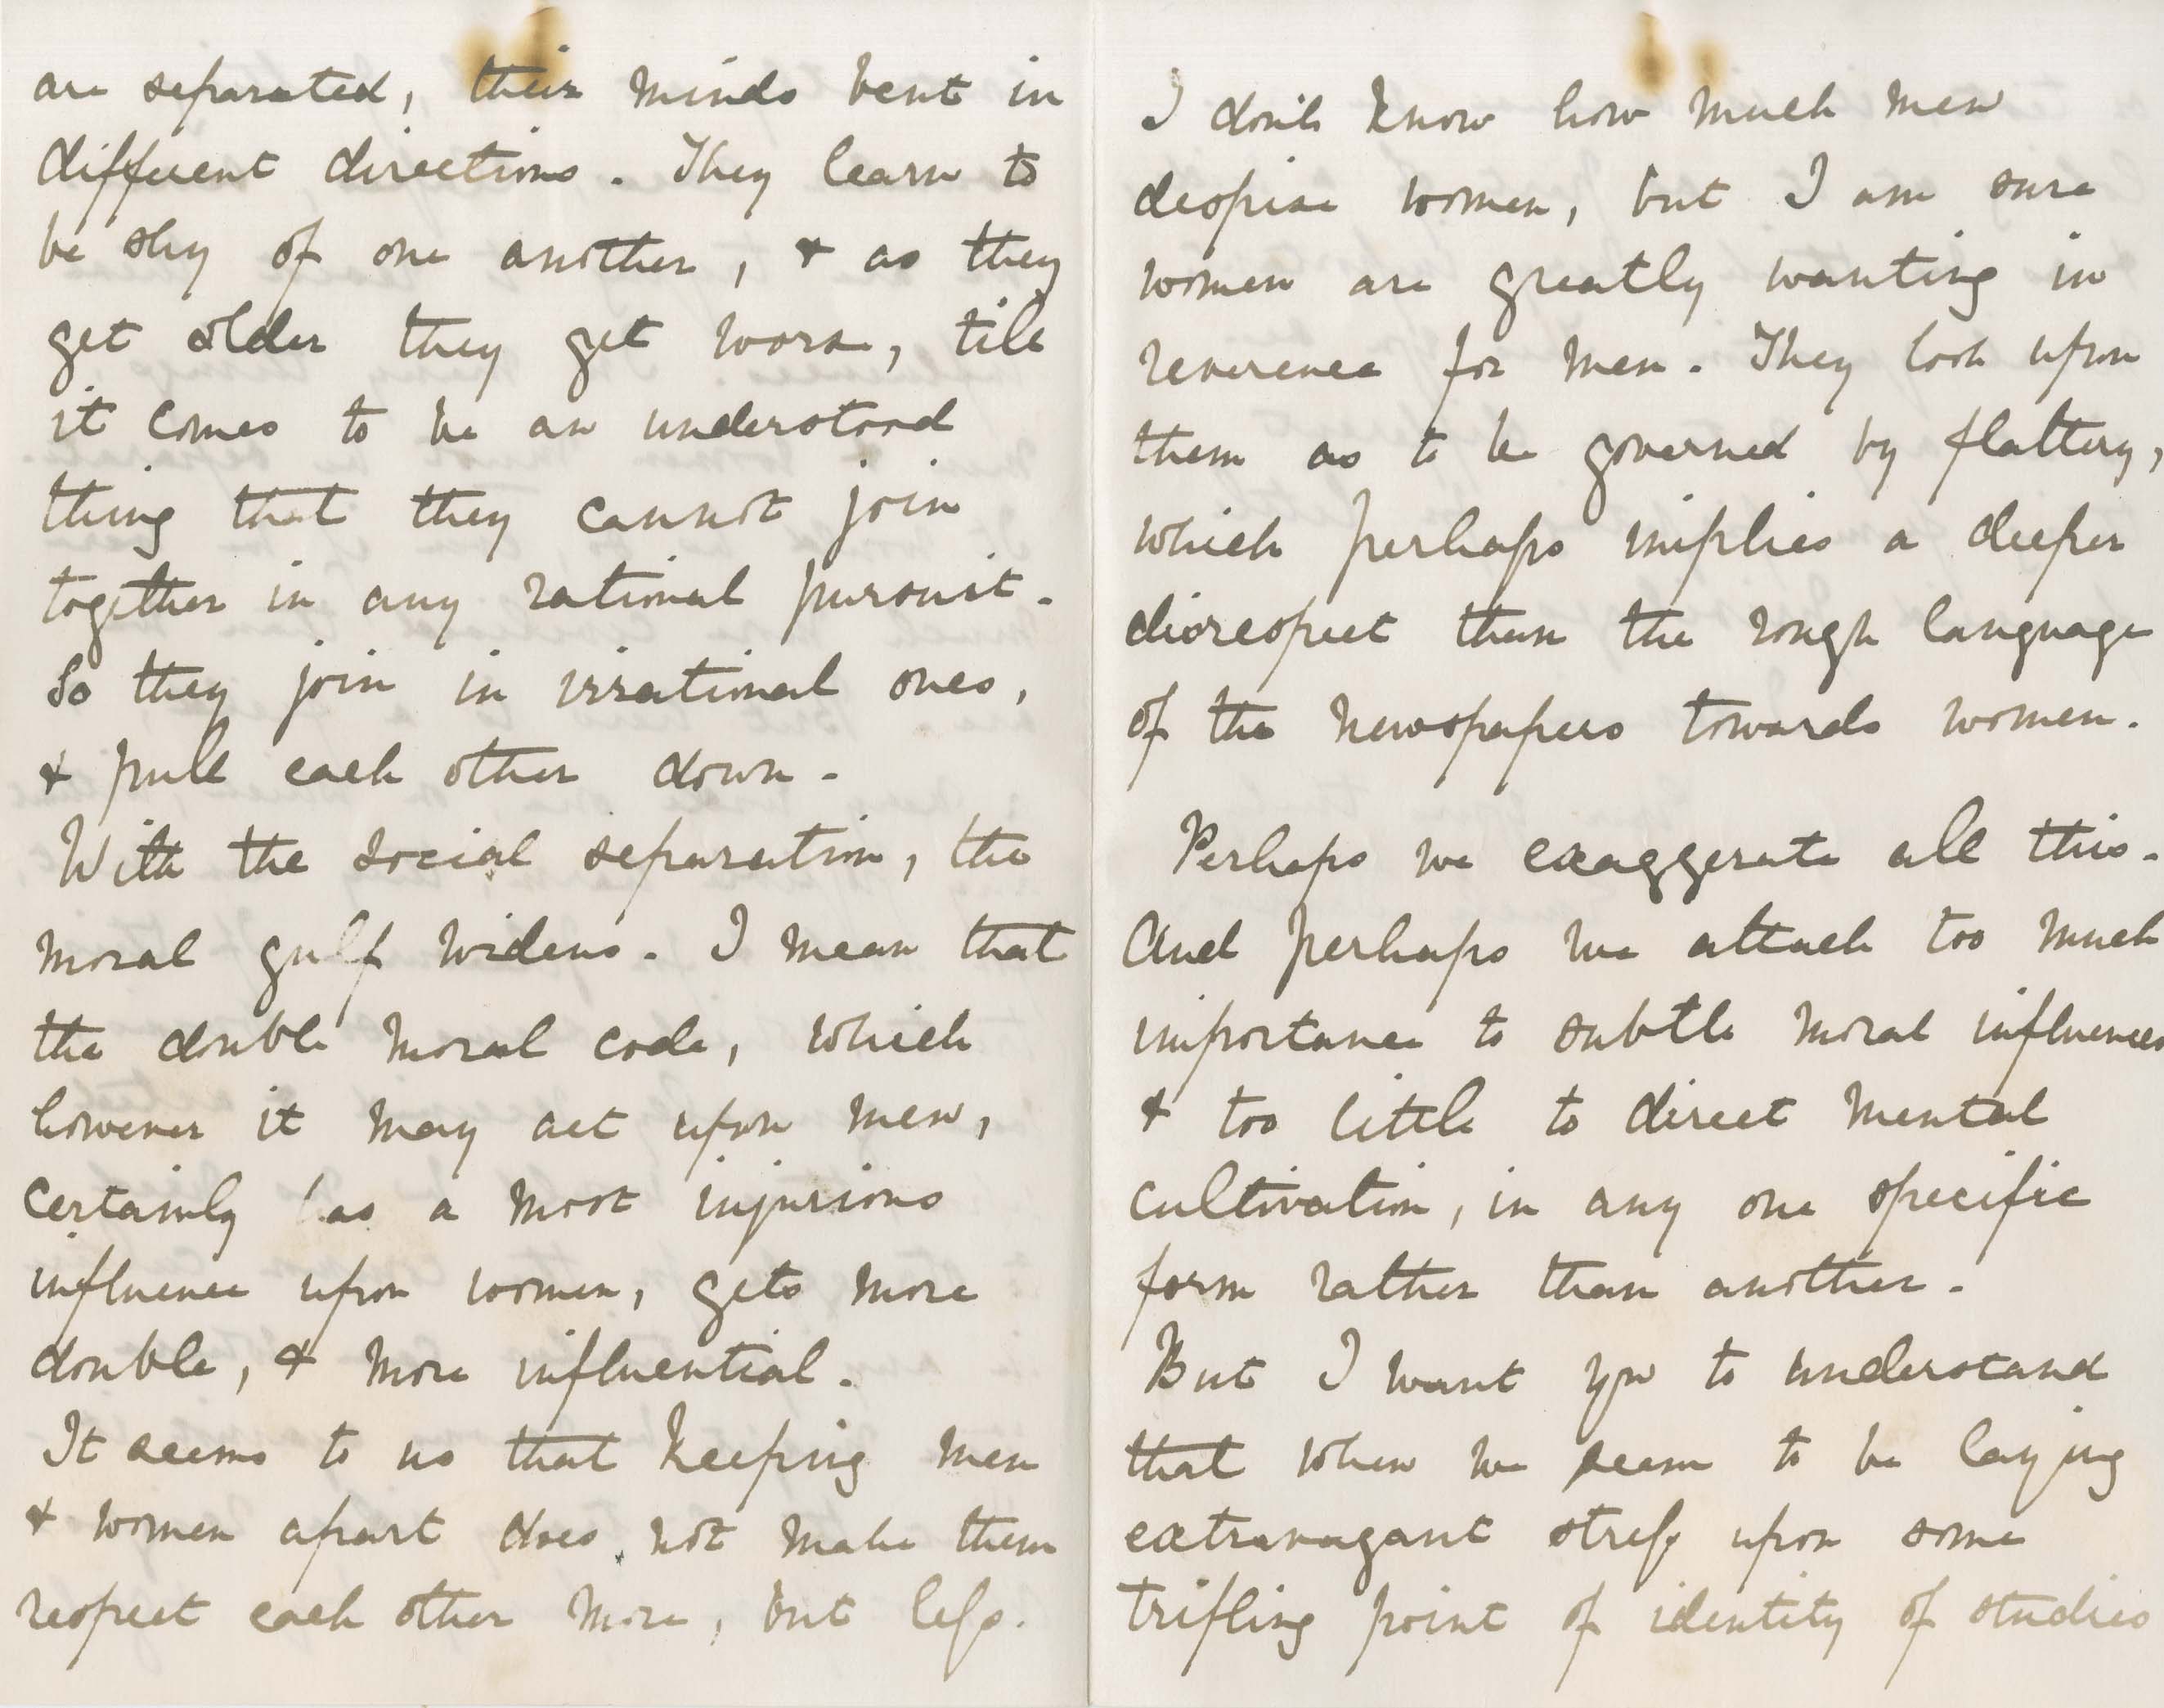 are separated, their minds bent in
different directions. They learn to
be shy of one another, & as they
get older they get worse, till
it comes to be an understood
thing that they cannot join
together in any rational pursuit.
So they join in irrational ones,
& pull each other down.
With the social separation, the
moral gulf widens. I mean that
the double moral code, which
however it may act upon men,
certainly has a most injurious
influence upon women, gets more
double, & more influential.
It seems to us that keeping men
& women apart does not make them
respect each other more, but less.
I don't know how much men
despise women, but I am sure
women are greatly wanting in
reverence for men. They look upon
them as to be governed by flattery,
which perhaps implies a deeper
disrespect than the rough language
of the newspapers towards women.
Perhaps we exaggerate all this.
And perhaps we attach too much
importance to subtle moral influences
& too little to direct mental
cultivation, in any one specific
form rather than another.
But I want you to understand
that when we seem to be laying
extravagant stress upon some
trifling point of identity of studies